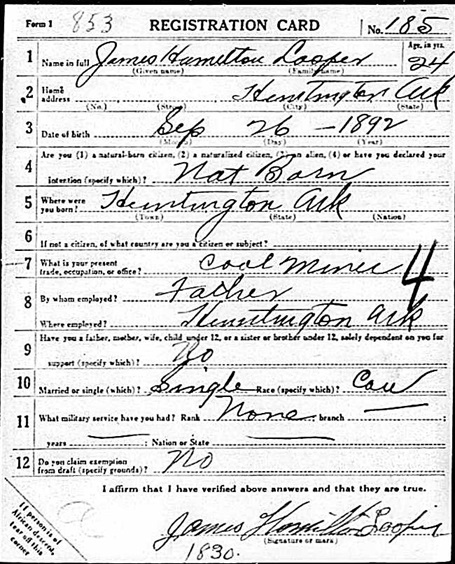 Form 1 853 REGISTRATION CARD No. 185
1 Name in full James Hamilton Looper Age, in yrs. 24
(Given name) (Family name)
2 Home address Huntington Ark
(No.) (Street) (City) (State)
3 Date of birth Sep 26 - 1892
(Month) (Day) (Year)
4 Are you (1) a natural-born citizen, (2) a naturalized citizen, (3) an alien, (4) or have you declared your
intention (specify which)? Nat Born
5 Where were you born? Huntington Ark
(Town) (State) (Nation)
6 If not a citizen, of what country are you a citizen or subject?
7 What is your present trade, occupation, or office? Coal Miner 4
8 By whom employed? Father
Where employed? Huntington Ark
9 Have you a father, mother, wife, child under 12, or a sister or brother under 12, solely dependent on you for
support (specify which)? No
10 Married or single (which)? Single Race (specify which)? Cau
11 What military service have you had? Rank None ; branch —
years — ; Nation or State —
12 Do you claim exemption from draft (specify grounds)? No
I affirm that I have verified above answers and that they are true.
James Hamilton Looper
(Signature or mark)
1830.
If person is of
African descent,
tear off this
corner